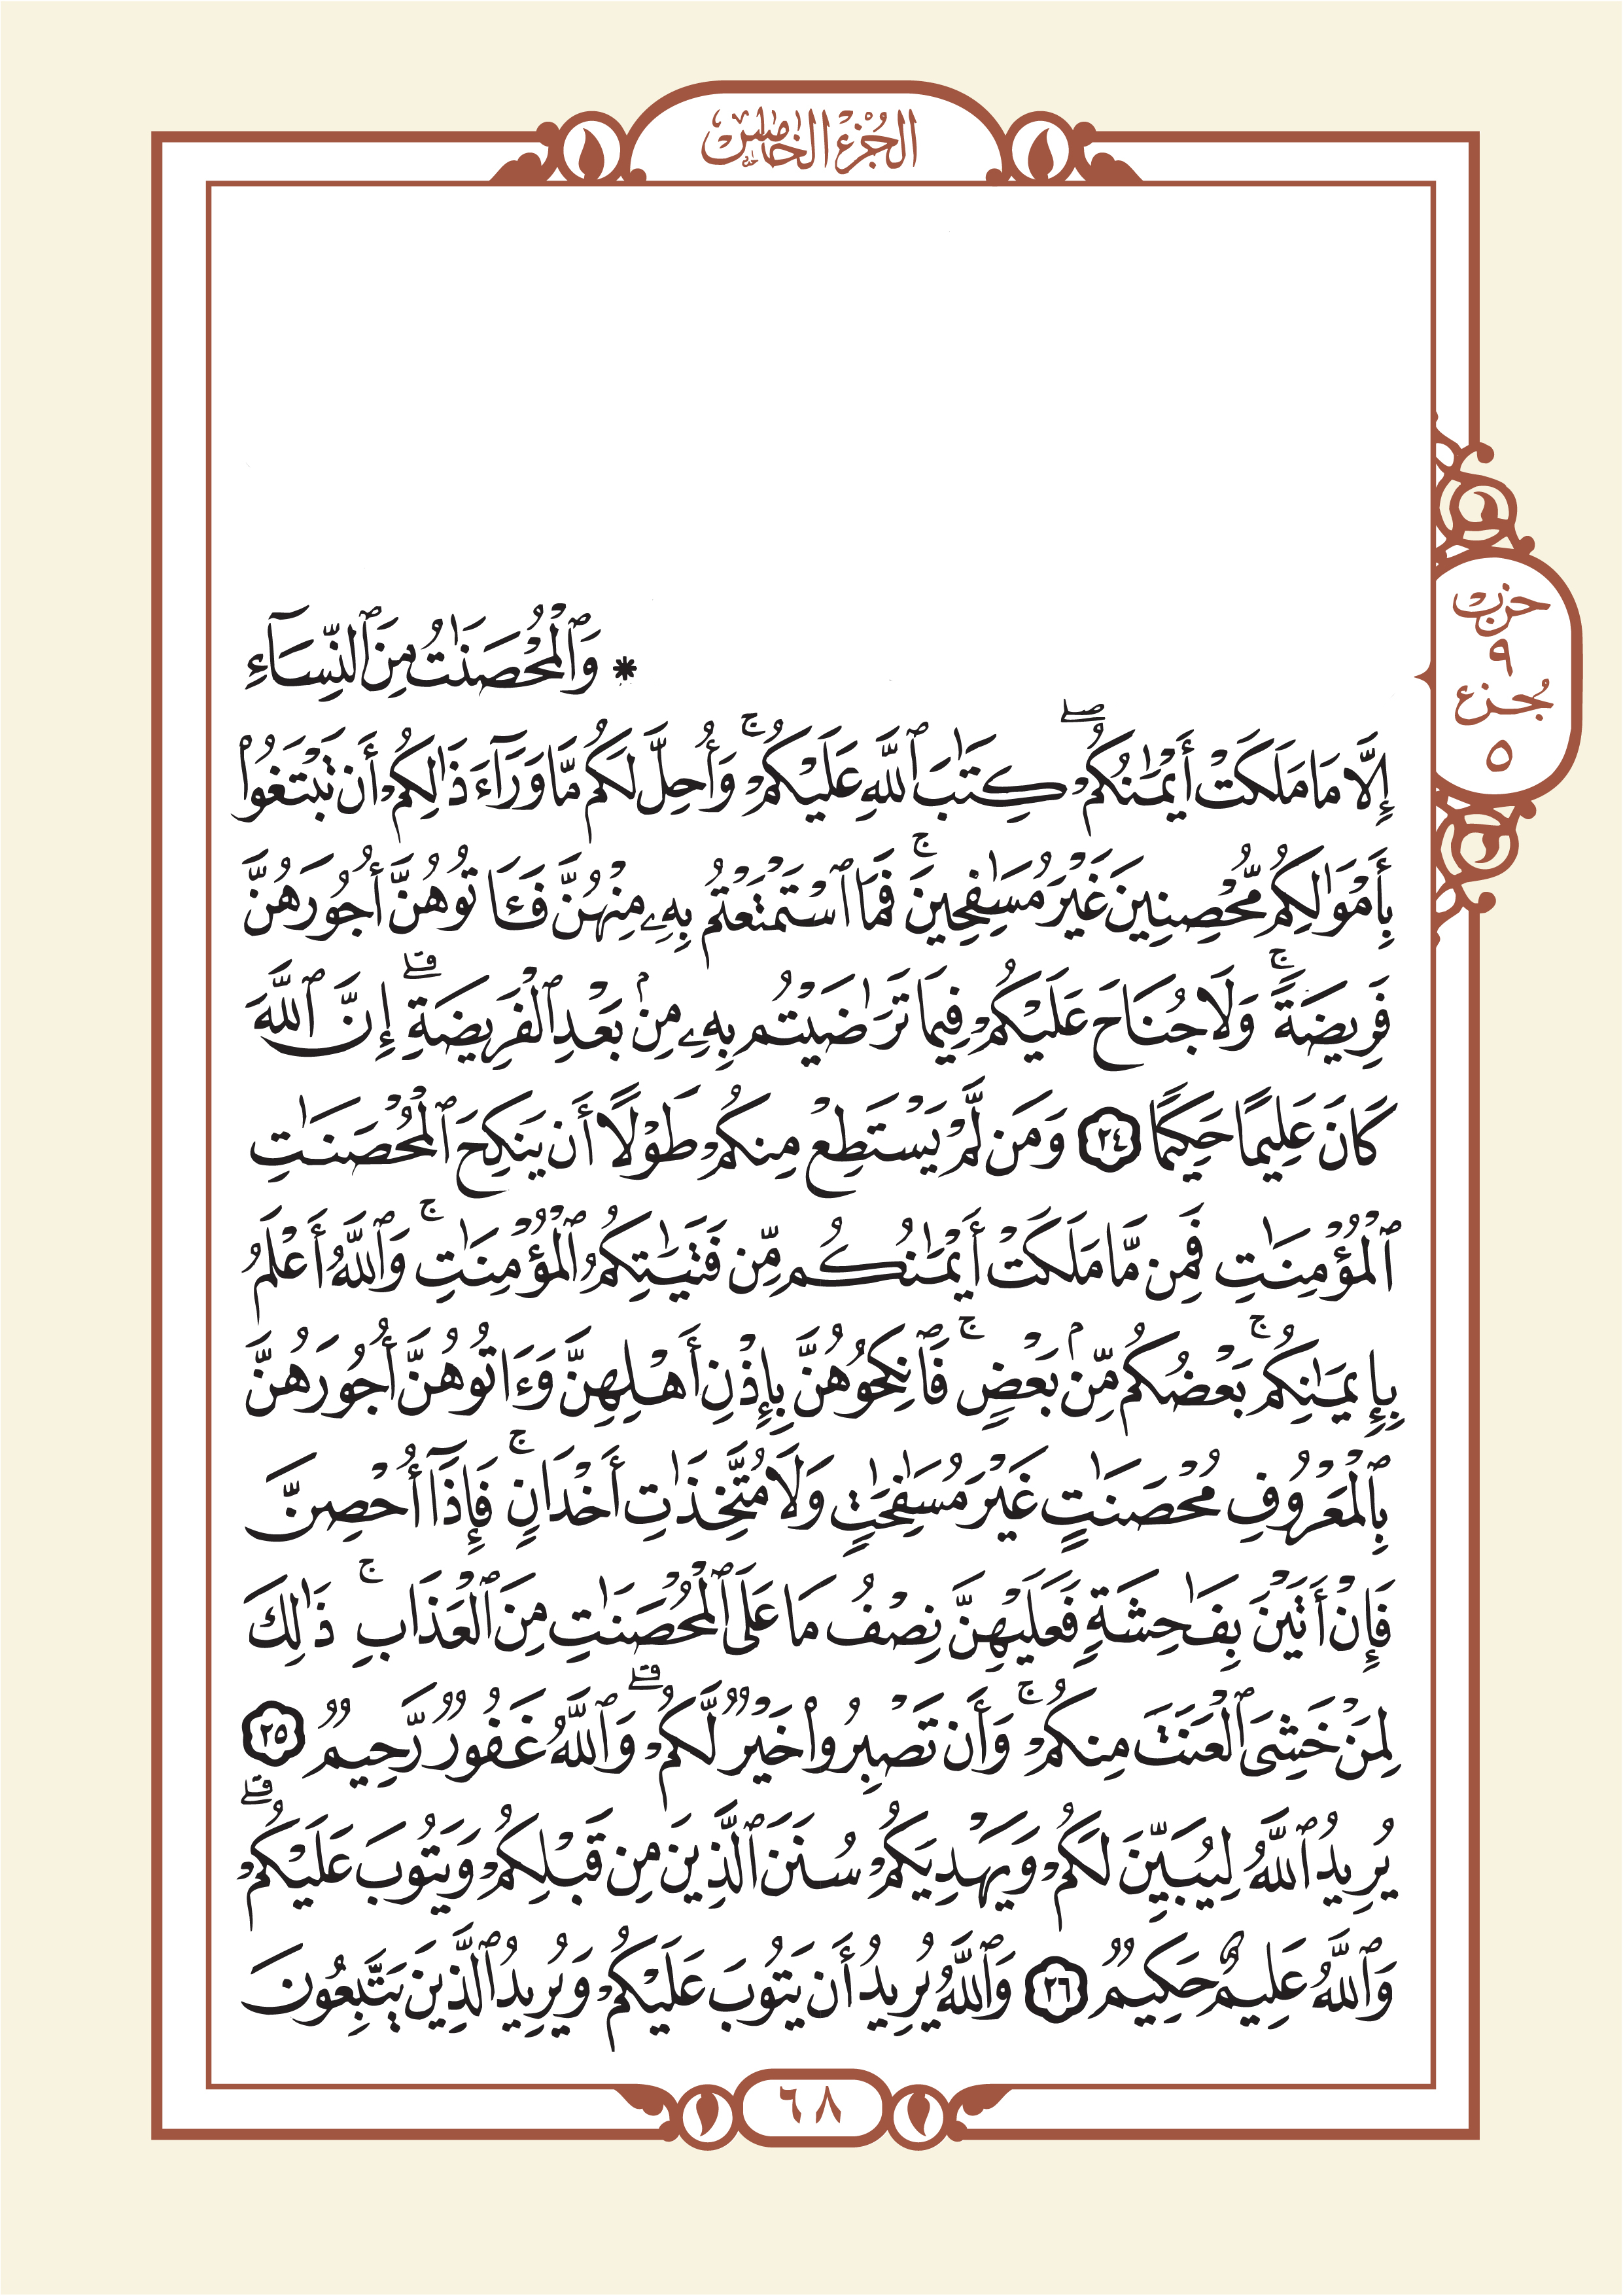 الجزء الخامس
حزب
٩
جزء
٥
* وَٱلْمُحْصَنَٰتُ مِنَ ٱلنِّسَآءِ
إِلَّا مَا مَلَكَتْ أَيْمَٰنُكُمْ ۖ كِتَٰبَ ٱللَّهِ عَلَيْكُمْ ۚ وَأُحِلَّ لَكُم مَّا وَرَآءَ ذَٰلِكُمْ أَن تَبْتَغُوا۟
بِأَمْوَٰلِكُم مُّحْصِنِينَ غَيْرَ مُسَٰفِحِينَ ۚ فَمَا ٱسْتَمْتَعْتُم بِهِۦ مِنْهُنَّ فَـَٔاتُوهُنَّ أُجُورَهُنَّ
فَرِيضَةً ۚ وَلَا جُنَاحَ عَلَيْكُمْ فِيمَا تَرَٰضَيْتُم بِهِۦ مِنۢ بَعْدِ ٱلْفَرِيضَةِ ۗ إِنَّ ٱللَّهَ
كَانَ عَلِيمًا حَكِيمًا ٢٤ وَمَن لَّمْ يَسْتَطِعْ مِنكُمْ طَوْلًا أَن يَنكِحَ ٱلْمُحْصَنَٰتِ
ٱلْمُؤْمِنَٰتِ فَمِن مَّا مَلَكَتْ أَيْمَٰنُكُم مِّن فَتَيَٰتِكُمُ ٱلْمُؤْمِنَٰتِ ۚ وَٱللَّهُ أَعْلَمُ
بِإِيمَٰنِكُم ۚ بَعْضُكُم مِّنۢ بَعْضٍ ۚ فَٱنكِحُوهُنَّ بِإِذْنِ أَهْلِهِنَّ وَءَاتُوهُنَّ أُجُورَهُنَّ
بِٱلْمَعْرُوفِ مُحْصَنَٰتٍ غَيْرَ مُسَٰفِحَٰتٍ وَلَا مُتَّخِذَٰتِ أَخْدَانٍ ۚ فَإِذَآ أُحْصِنَّ
فَإِنْ أَتَيْنَ بِفَٰحِشَةٍ فَعَلَيْهِنَّ نِصْفُ مَا عَلَى ٱلْمُحْصَنَٰتِ مِنَ ٱلْعَذَابِ ۚ ذَٰلِكَ
لِمَنْ خَشِىَ ٱلْعَنَتَ مِنكُمْ ۚ وَأَن تَصْبِرُوا۟ خَيْرٌ لَّكُمْ ۗ وَٱللَّهُ غَفُورٌ رَّحِيمٌ ٢٥
يُرِيدُ ٱللَّهُ لِيُبَيِّنَ لَكُمْ وَيَهْدِيَكُمْ سُنَنَ ٱلَّذِينَ مِن قَبْلِكُمْ وَيَتُوبَ عَلَيْكُمْ ۗ
وَٱللَّهُ عَلِيمٌ حَكِيمٌ ٢٦ وَٱللَّهُ يُرِيدُ أَن يَتُوبَ عَلَيْكُمْ وَيُرِيدُ ٱلَّذِينَ يَتَّبِعُونَ
٦٨